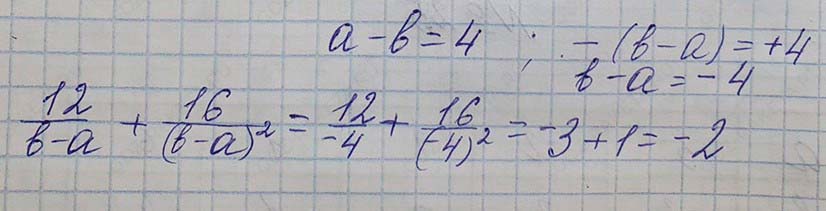 a - b = 4 ; - (b - a) = +4
b - a = -4
12/(b-a) + 16/(b-a)² = 12/-4 + 16/(-4)² = -3 + 1 = -2